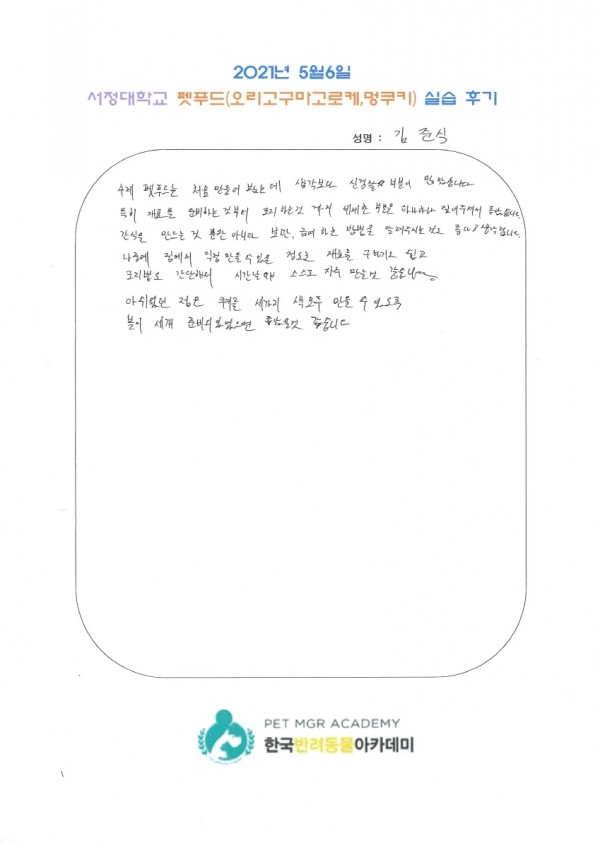 2021년 5월6일
서정대학교 펫푸드(오리고구마고로케,멍쿠키) 실습 후기
성명 : 김 준식
수제 펫푸드를 처음 만들어 보는데 생각보다 신경쓸 부분이 많았습니다
특히 재료를 준비하는 것부터 조리하는것 까지 세세한 부분을 하나하나 알려주셔서 좋았습니다.
간식을 만드는 것 뿐만 아니라 보관, 급여 하는 방법을 알려주시는 것도 좋다고 생각합니다.
나중에 집에서 직접 만들 수 있을 정도로 재료를 구하기도 쉽고
조리법도 간단해서 시간날때 스스로 자주 만들것 같습니다
아쉬웠던 점은 쿠키를 세가지 색 모두 만들 수 있도록
볼이 세개 준비되어있으면 좋았을것 같습니다
PET MGR ACADEMY
한국반려동물아카데미